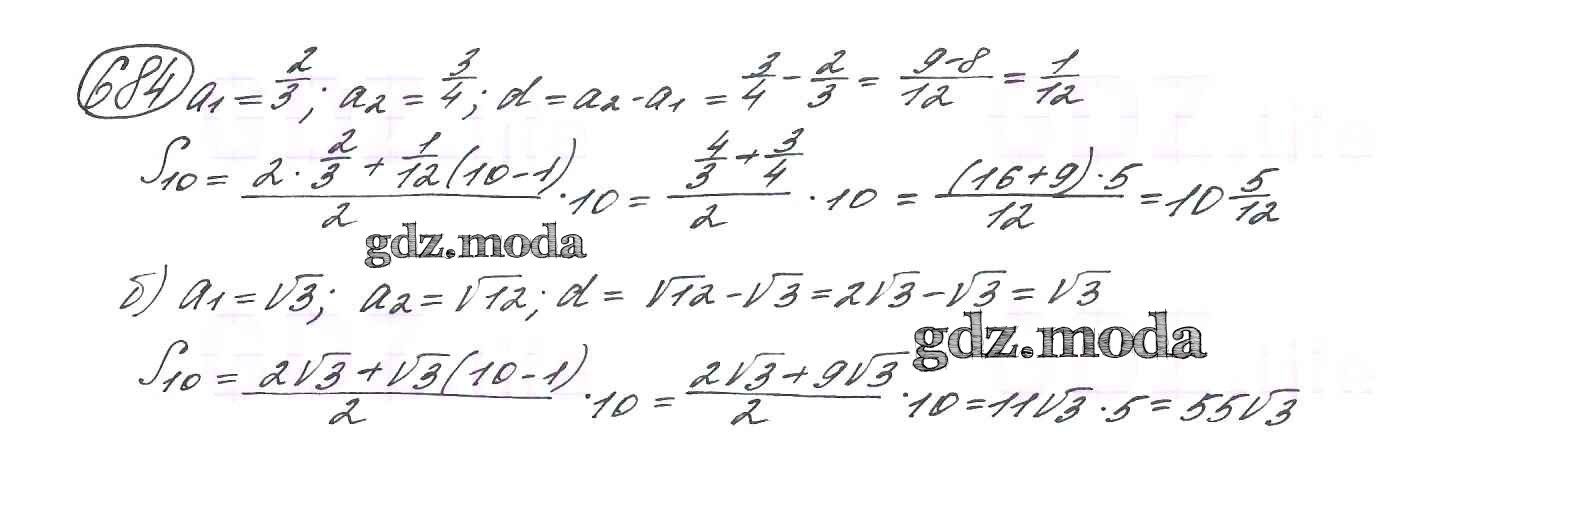 684 a₁ = 2/3; a₂ = 3/4; d = a₂ - a₁ = 3/4 - 2/3 = (9-8)/12 = 1/12
S₁₀ = (2 · 2/3 + 1/12 (10-1))/2 · 10 = (4/3 + 3/4)/2 · 10 = ((16+9) · 5)/12 = 10 5/12
gdz.moda
б) a₁ = √3; a₂ = √12; d = √12 - √3 = 2√3 - √3 = √3
gdz.moda
S₁₀ = (2√3 + √3 (10-1))/2 · 10 = (2√3 + 9√3)/2 · 10 = 11√3 · 5 = 55√3